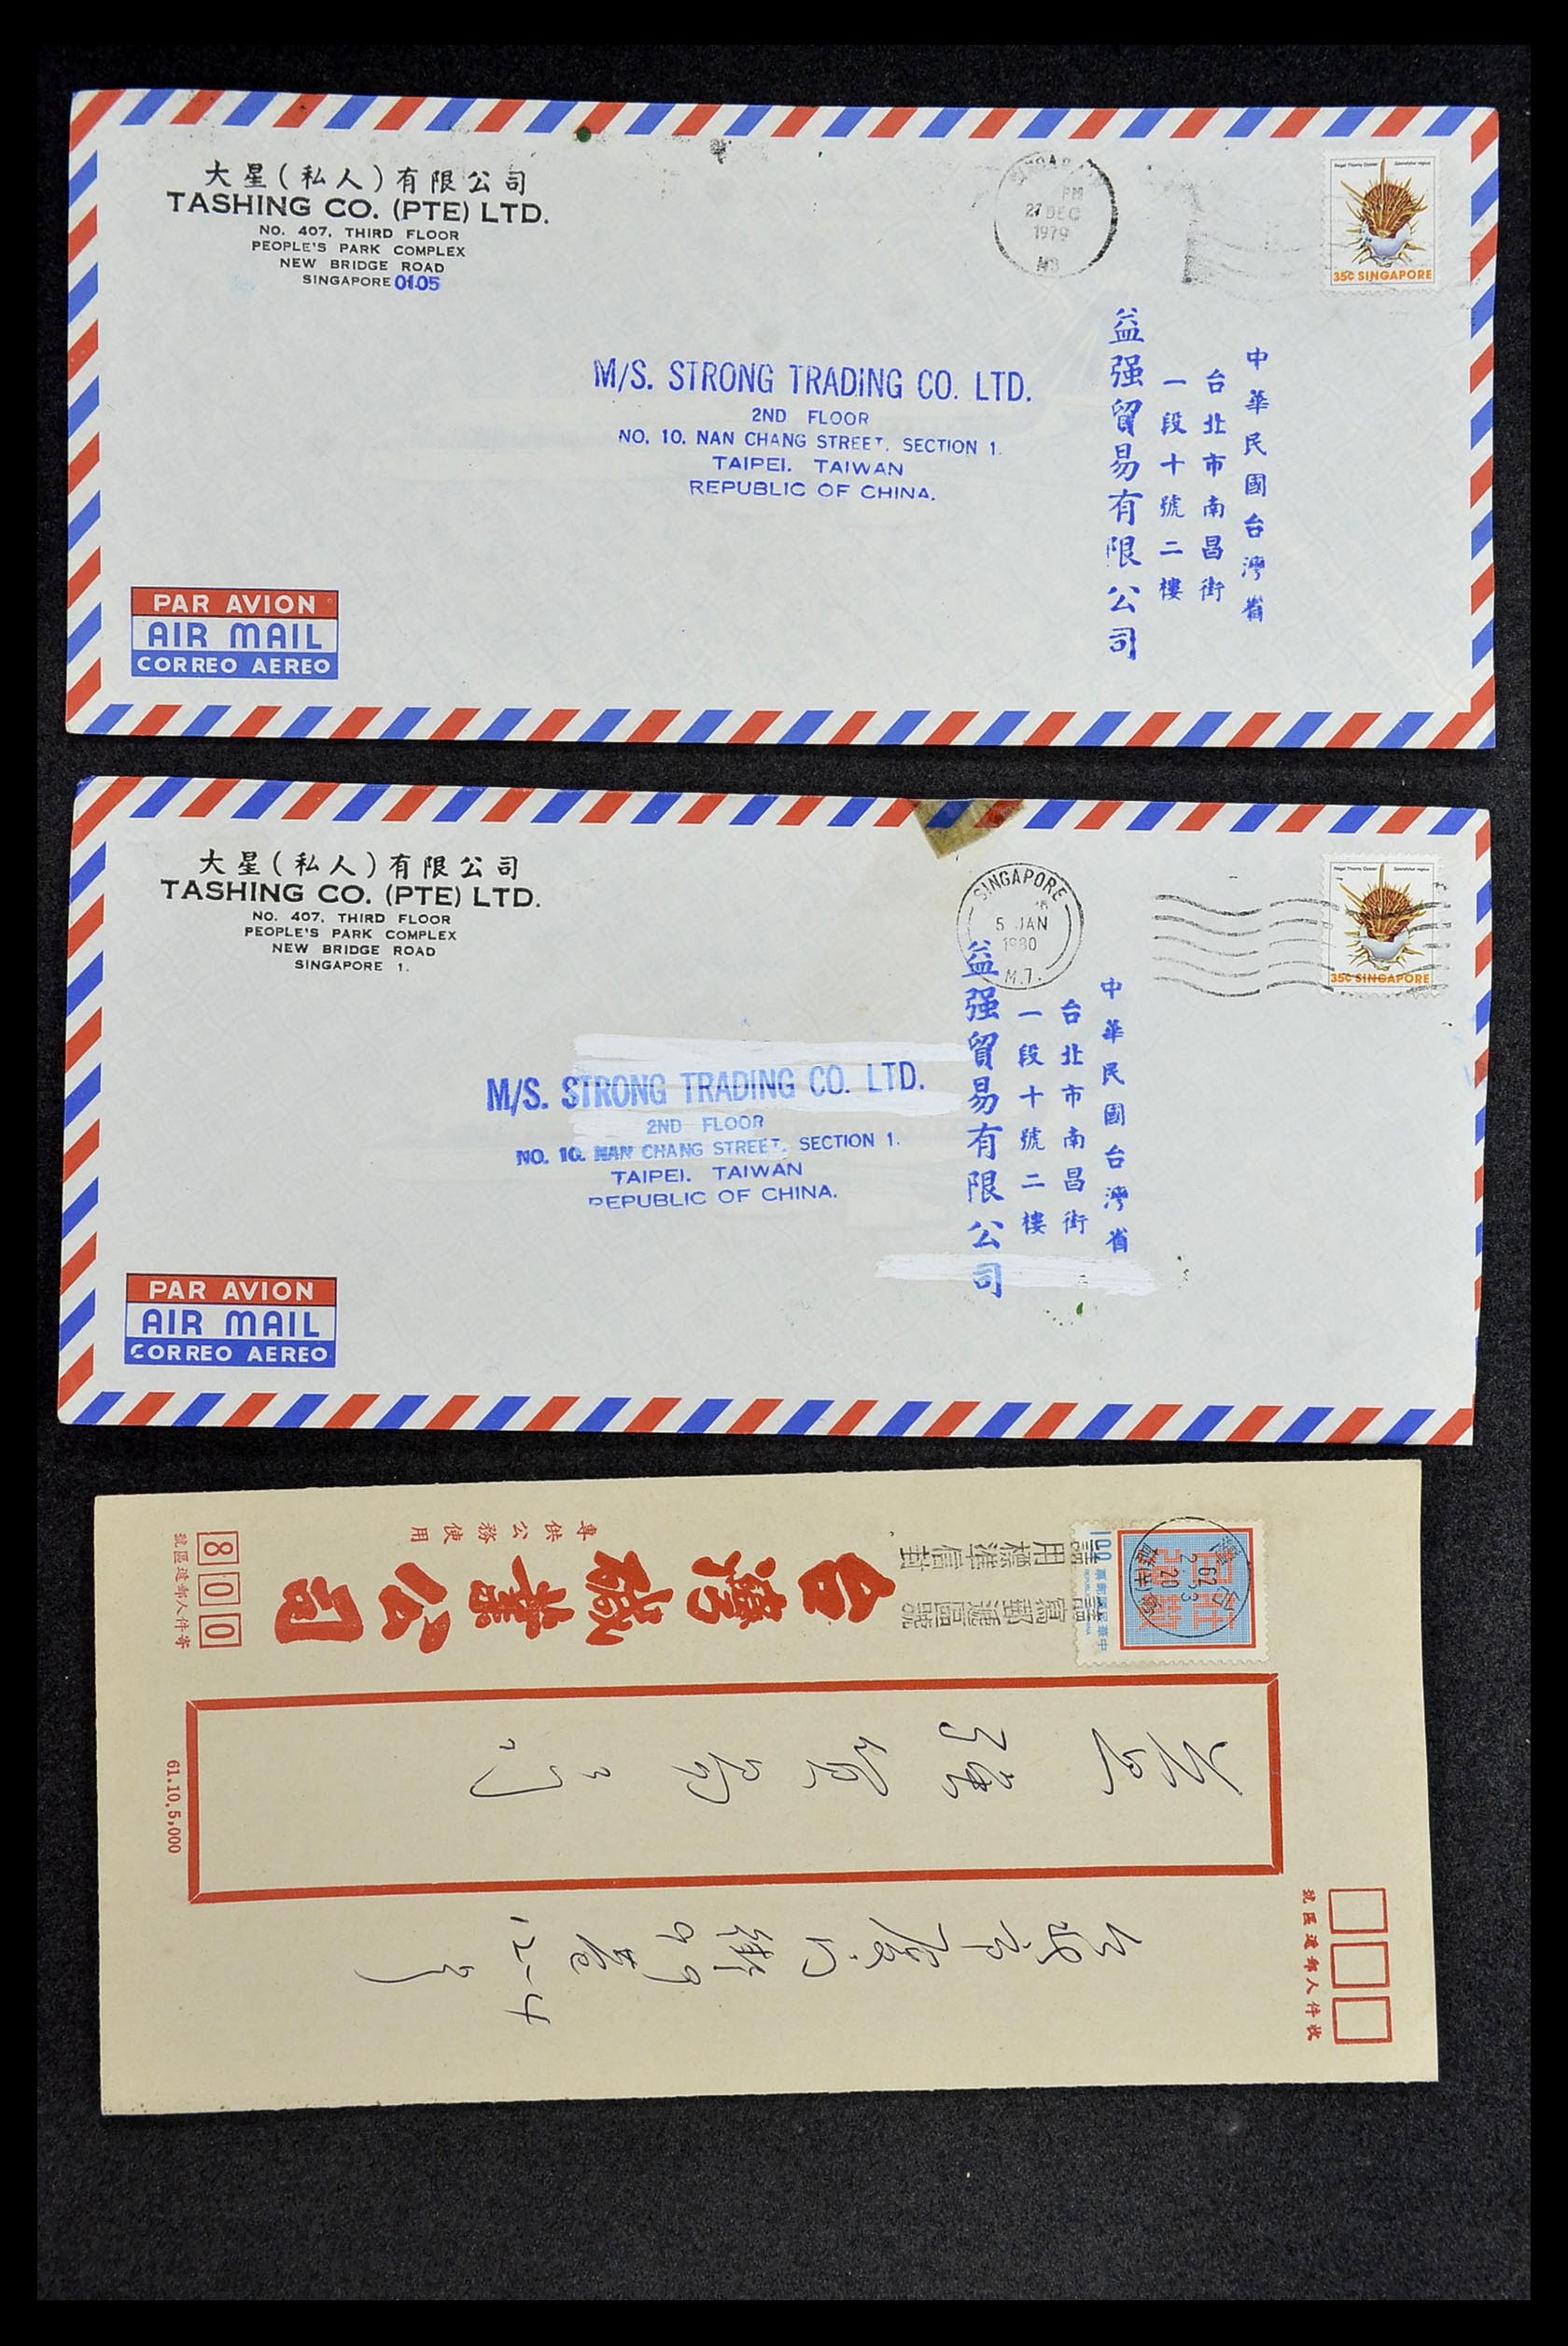 大星(私人)有限公司
TASHING CO. (PTE) LTD.
NO. 407, THIRD FLOOR
PEOPLE'S PARK COMPLEX
NEW BRIDGE ROAD
SINGAPORE 0105
PM
27 DEC
1979
Regal Thorny Oyster Spondylus regius
35c SINGAPORE
M/S. STRONG TRADING CO. LTD.
2ND FLOOR
NO. 10. NAN CHANG STREET, SECTION 1.
TAIPEI. TAIWAN
REPUBLIC OF CHINA.
中華民國台灣省
台北市南昌街
一段十號二樓
益强貿易有限公司
PAR AVION
AIR MAIL
CORREO AEREO
大星(私人)有限公司
TASHING CO. (PTE) LTD.
NO. 407, THIRD FLOOR
PEOPLE'S PARK COMPLEX
NEW BRIDGE ROAD
SINGAPORE 1.
SINGAPORE
5 JAN
1980
M.7.
Regal Thorny Oyster Spondylus regius
35c SINGAPORE
M/S. STRONG TRADING CO. LTD.
2ND FLOOR
NO. 10. NAN CHANG STREET, SECTION 1.
TAIPEI. TAIWAN
REPUBLIC OF CHINA.
中華民國台灣省
台北市南昌街
一段十號二樓
益强貿易有限公司
PAR AVION
AIR MAIL
CORREO AEREO
收件人郵遞區號
益強貿易公司
請用標準信封
寫郵遞區號
中華民國郵票
1.00
62.3.3
20
台灣碱業公司
專供公務使用
寄件人郵遞區號
800
61.10.5,000